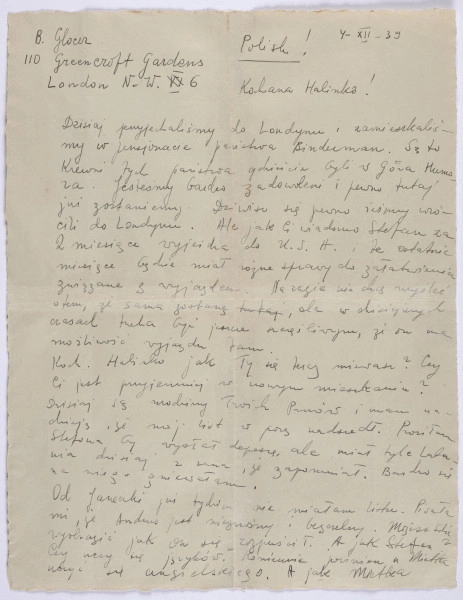 B. Glocer
110 Greencroft Gardens
London N.W. 6
Polish!
4-XII-39
Kochana Halinko!
Dzisiaj przyjechaliśmy do Londynu i zamieszkaliś-
my w pensjonacie państwa Binderman. Są to
krewni tych państwa gdzieście byli w Góra Humo-
ra. Jesteśmy bardzo zadowoleni i pewno tutaj
już zostaniemy. Dziwisz się pewno żeśmy wró-
cili do Londynu. Ale jak Ci wiadomo Stefan za
2 miesiące wyjeżdża do U.S.A. i te ostatnie
miesiące będzie miał różne sprawy do załatwienia
związane z wyjazdem. Narazie nie chcę myśleć
o tem, że sama zostanę tutaj, ale w dzisiejszych
czasach trzeba być jeszcze szczęśliwym, że on ma
możliwość wyjazdu tam.
Koch. Halinko jak Ty się teraz miewasz? Czy
Ci jest przyjemniej w nowym mieszkaniu?
Dzisiaj są urodziny Twoich Panów i mam na-
dzieję, że mój list w porę nadszedł. Prosiłam
Stefana by wysłał depeszę, ale miał tyle lata-
nia dzisiaj z rana, że zapomniał. Bardzo się
na niego gniewałam.
Od Janecki już tydzień nie miałam listu. Pisała
mi, że Andrzej jest nieznośny i bezczelny.
wyobrazić jak on się rozpuścił. A jak Stefan?
Czy uczy się języków.
uczy się angielskiego. A jak Metka